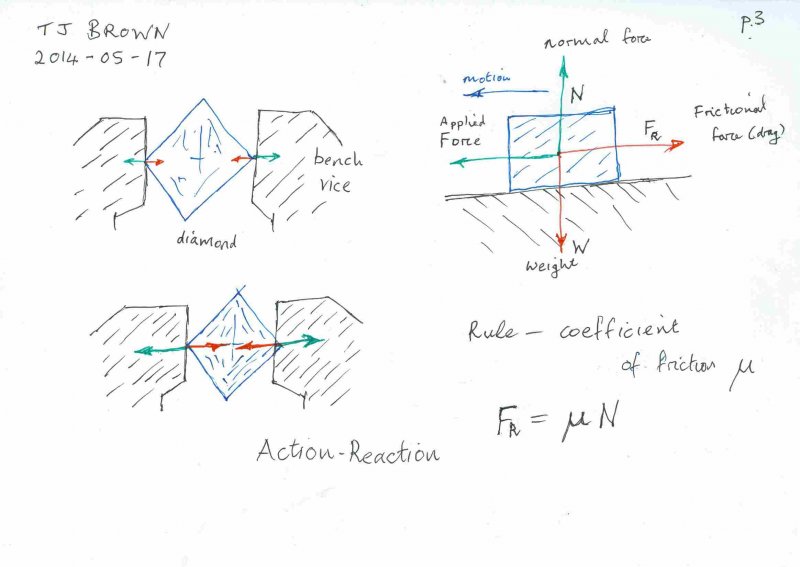 TJ BROWN
2014-05-17
p.3
normal force
motion
N
Applied
Force
FR
Frictional
force (drag)
bench
vice
diamond
W
weight
Rule - coefficient
of friction μ
FR = μN
Action-Reaction